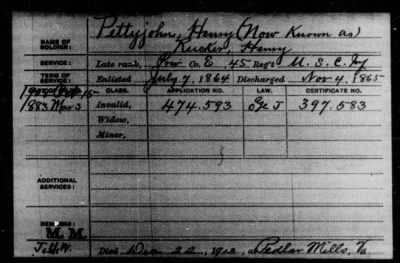 NAME OF SOLDIER: Pettyjohn, Henry (Now Known as)
Henry
SERVICE: Late rank, Co. E, 45 Reg't U. S. C. Inf
TERM OF SERVICE: Enlisted July 7, 1864 Discharged Nov 4, 1865
CLASS. APPLICATION NO. LAW. CERTIFICATE NO.
1883 Mar 5 Invalid, 474.593 397.583
Widow,
Minor,
ADDITIONAL SERVICES:
REMARKS:
M. M.
Died at Pedlar Mills, Va.